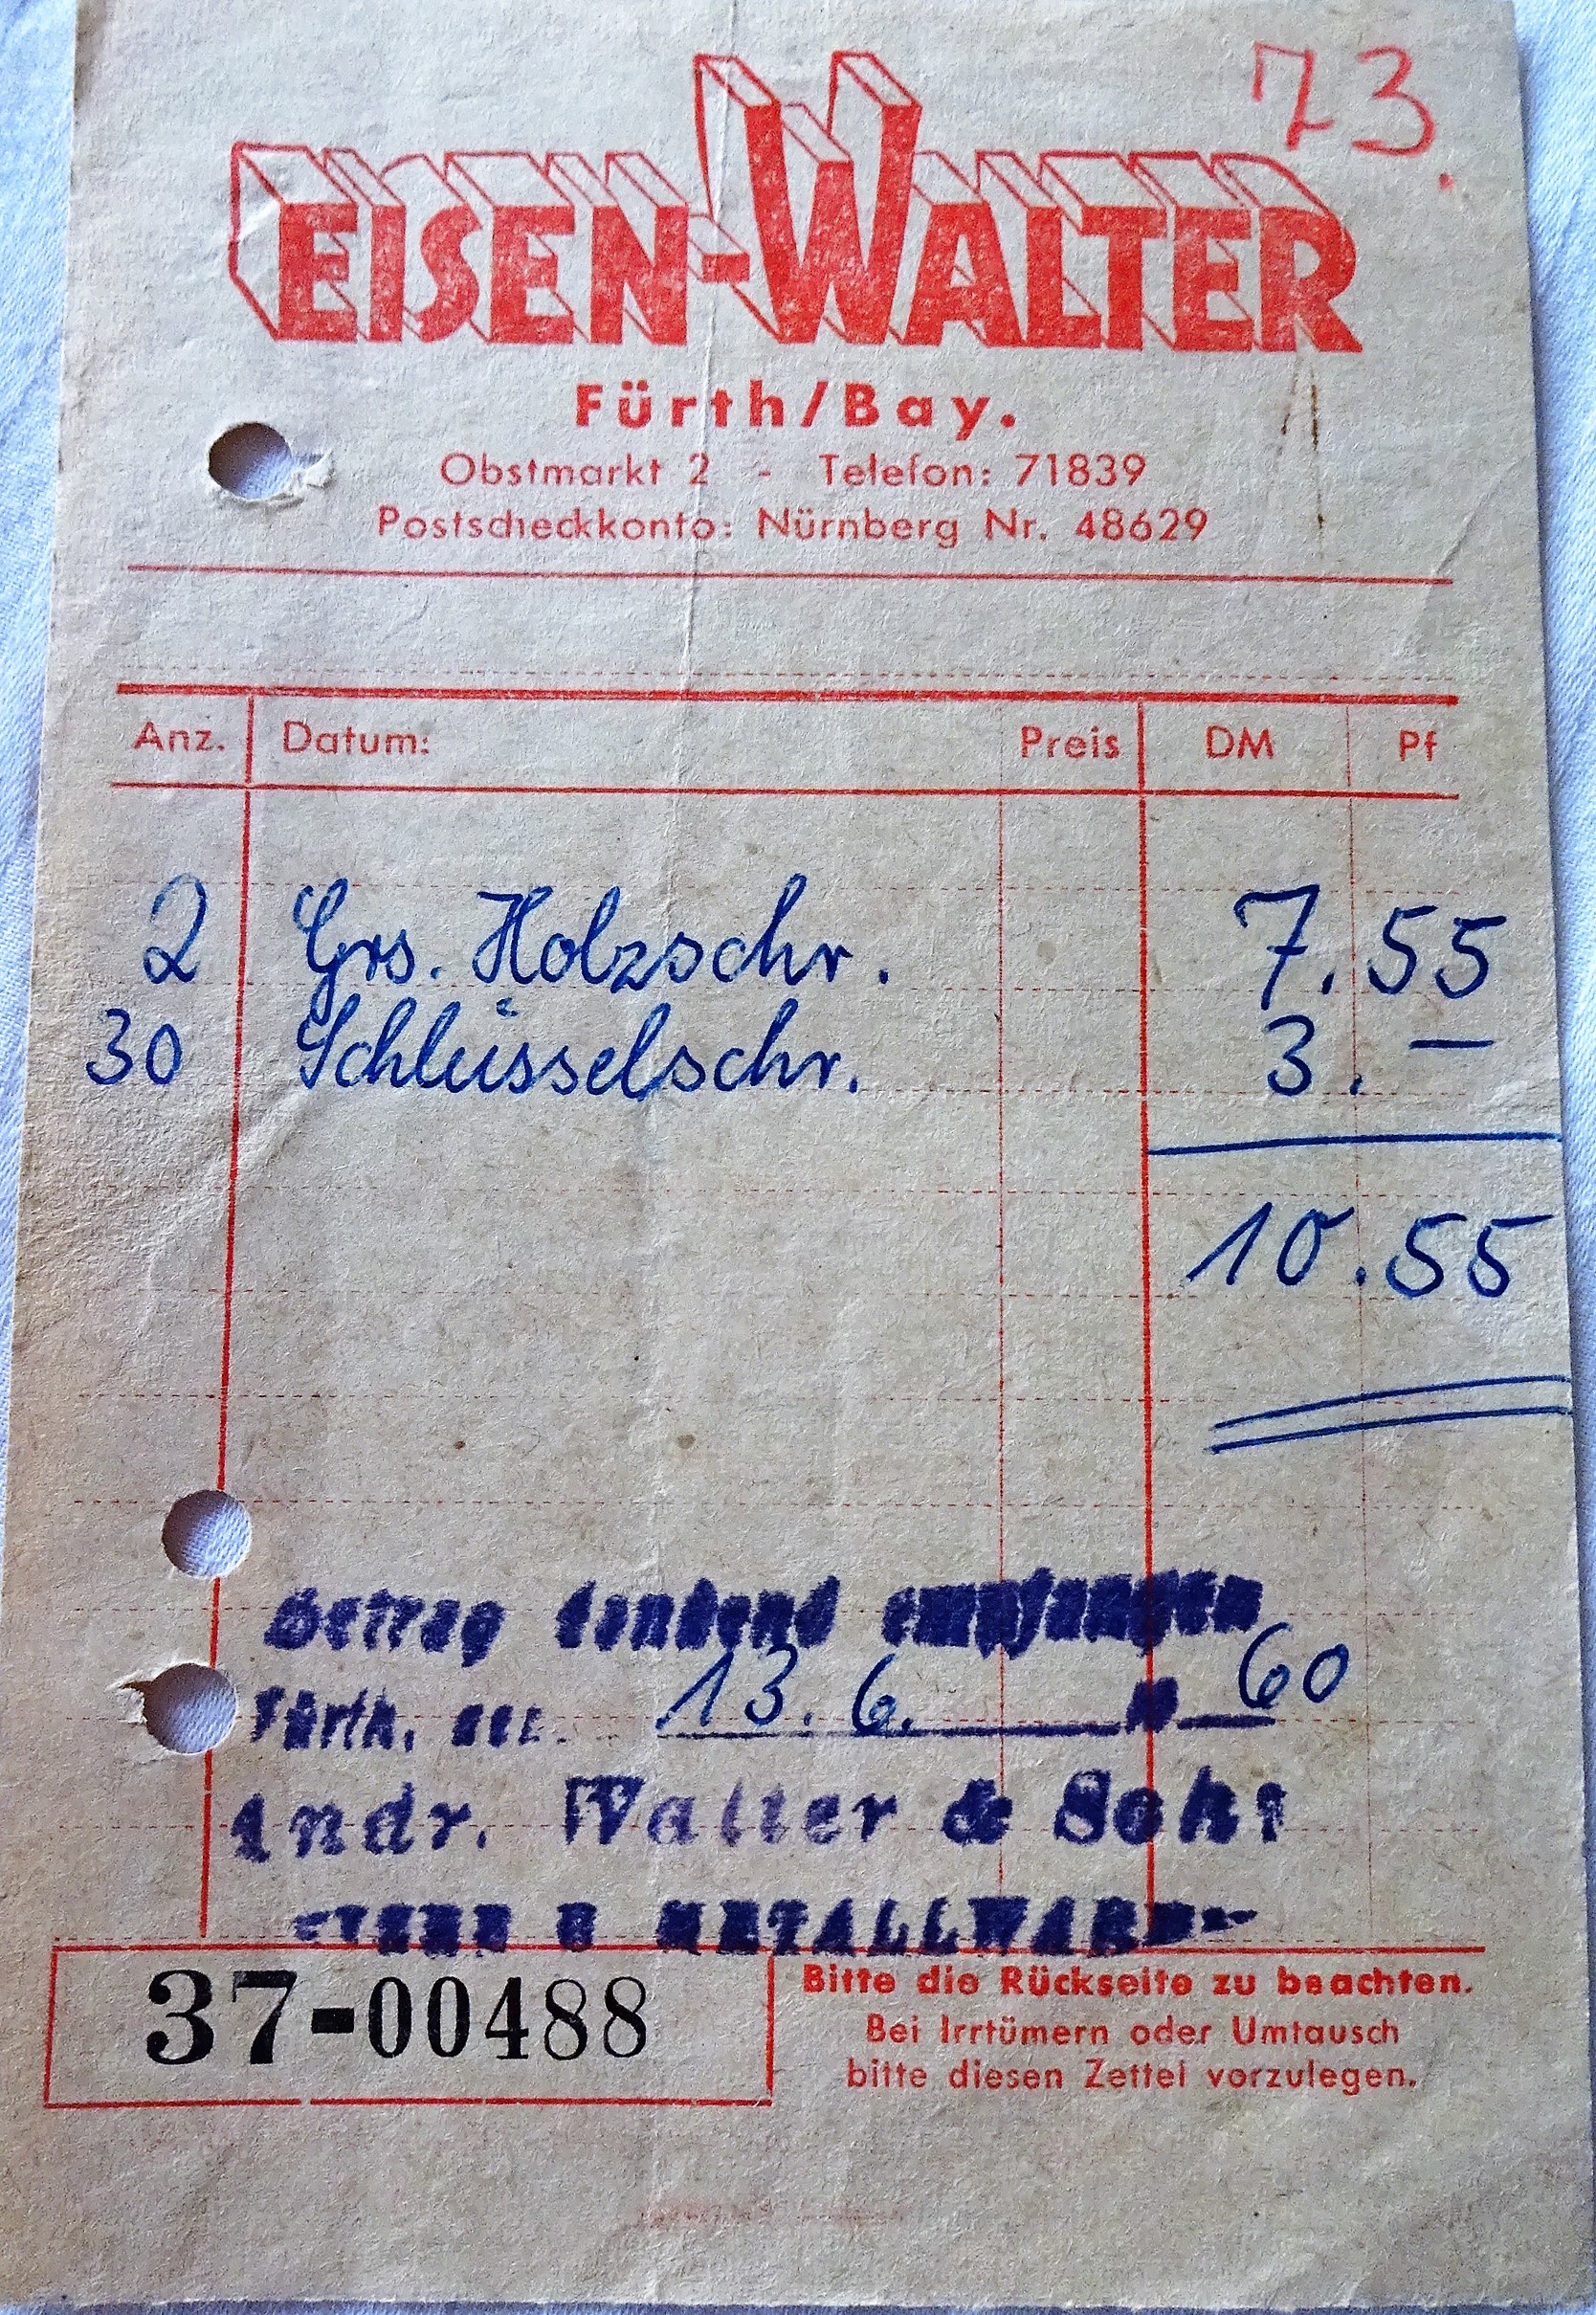 73.
EISEN-WALTER
Fürth/Bay.
Obstmarkt 2 - Telefon: 71839
Postscheckkonto: Nürnberg Nr. 48629
Anz. Datum: Preis DM Pf
2 Grs. Holzschr. 7.55
30 Schlüsselschr. 3.—
10.55
Betrag dankend empfangen
Fürth, den 13.6. 19 60
Andr. Walter & Sohn
METALLWAREN
37-00488
Bitte die Rückseite zu beachten.
Bei Irrtümern oder Umtausch
bitte diesen Zettel vorzulegen.